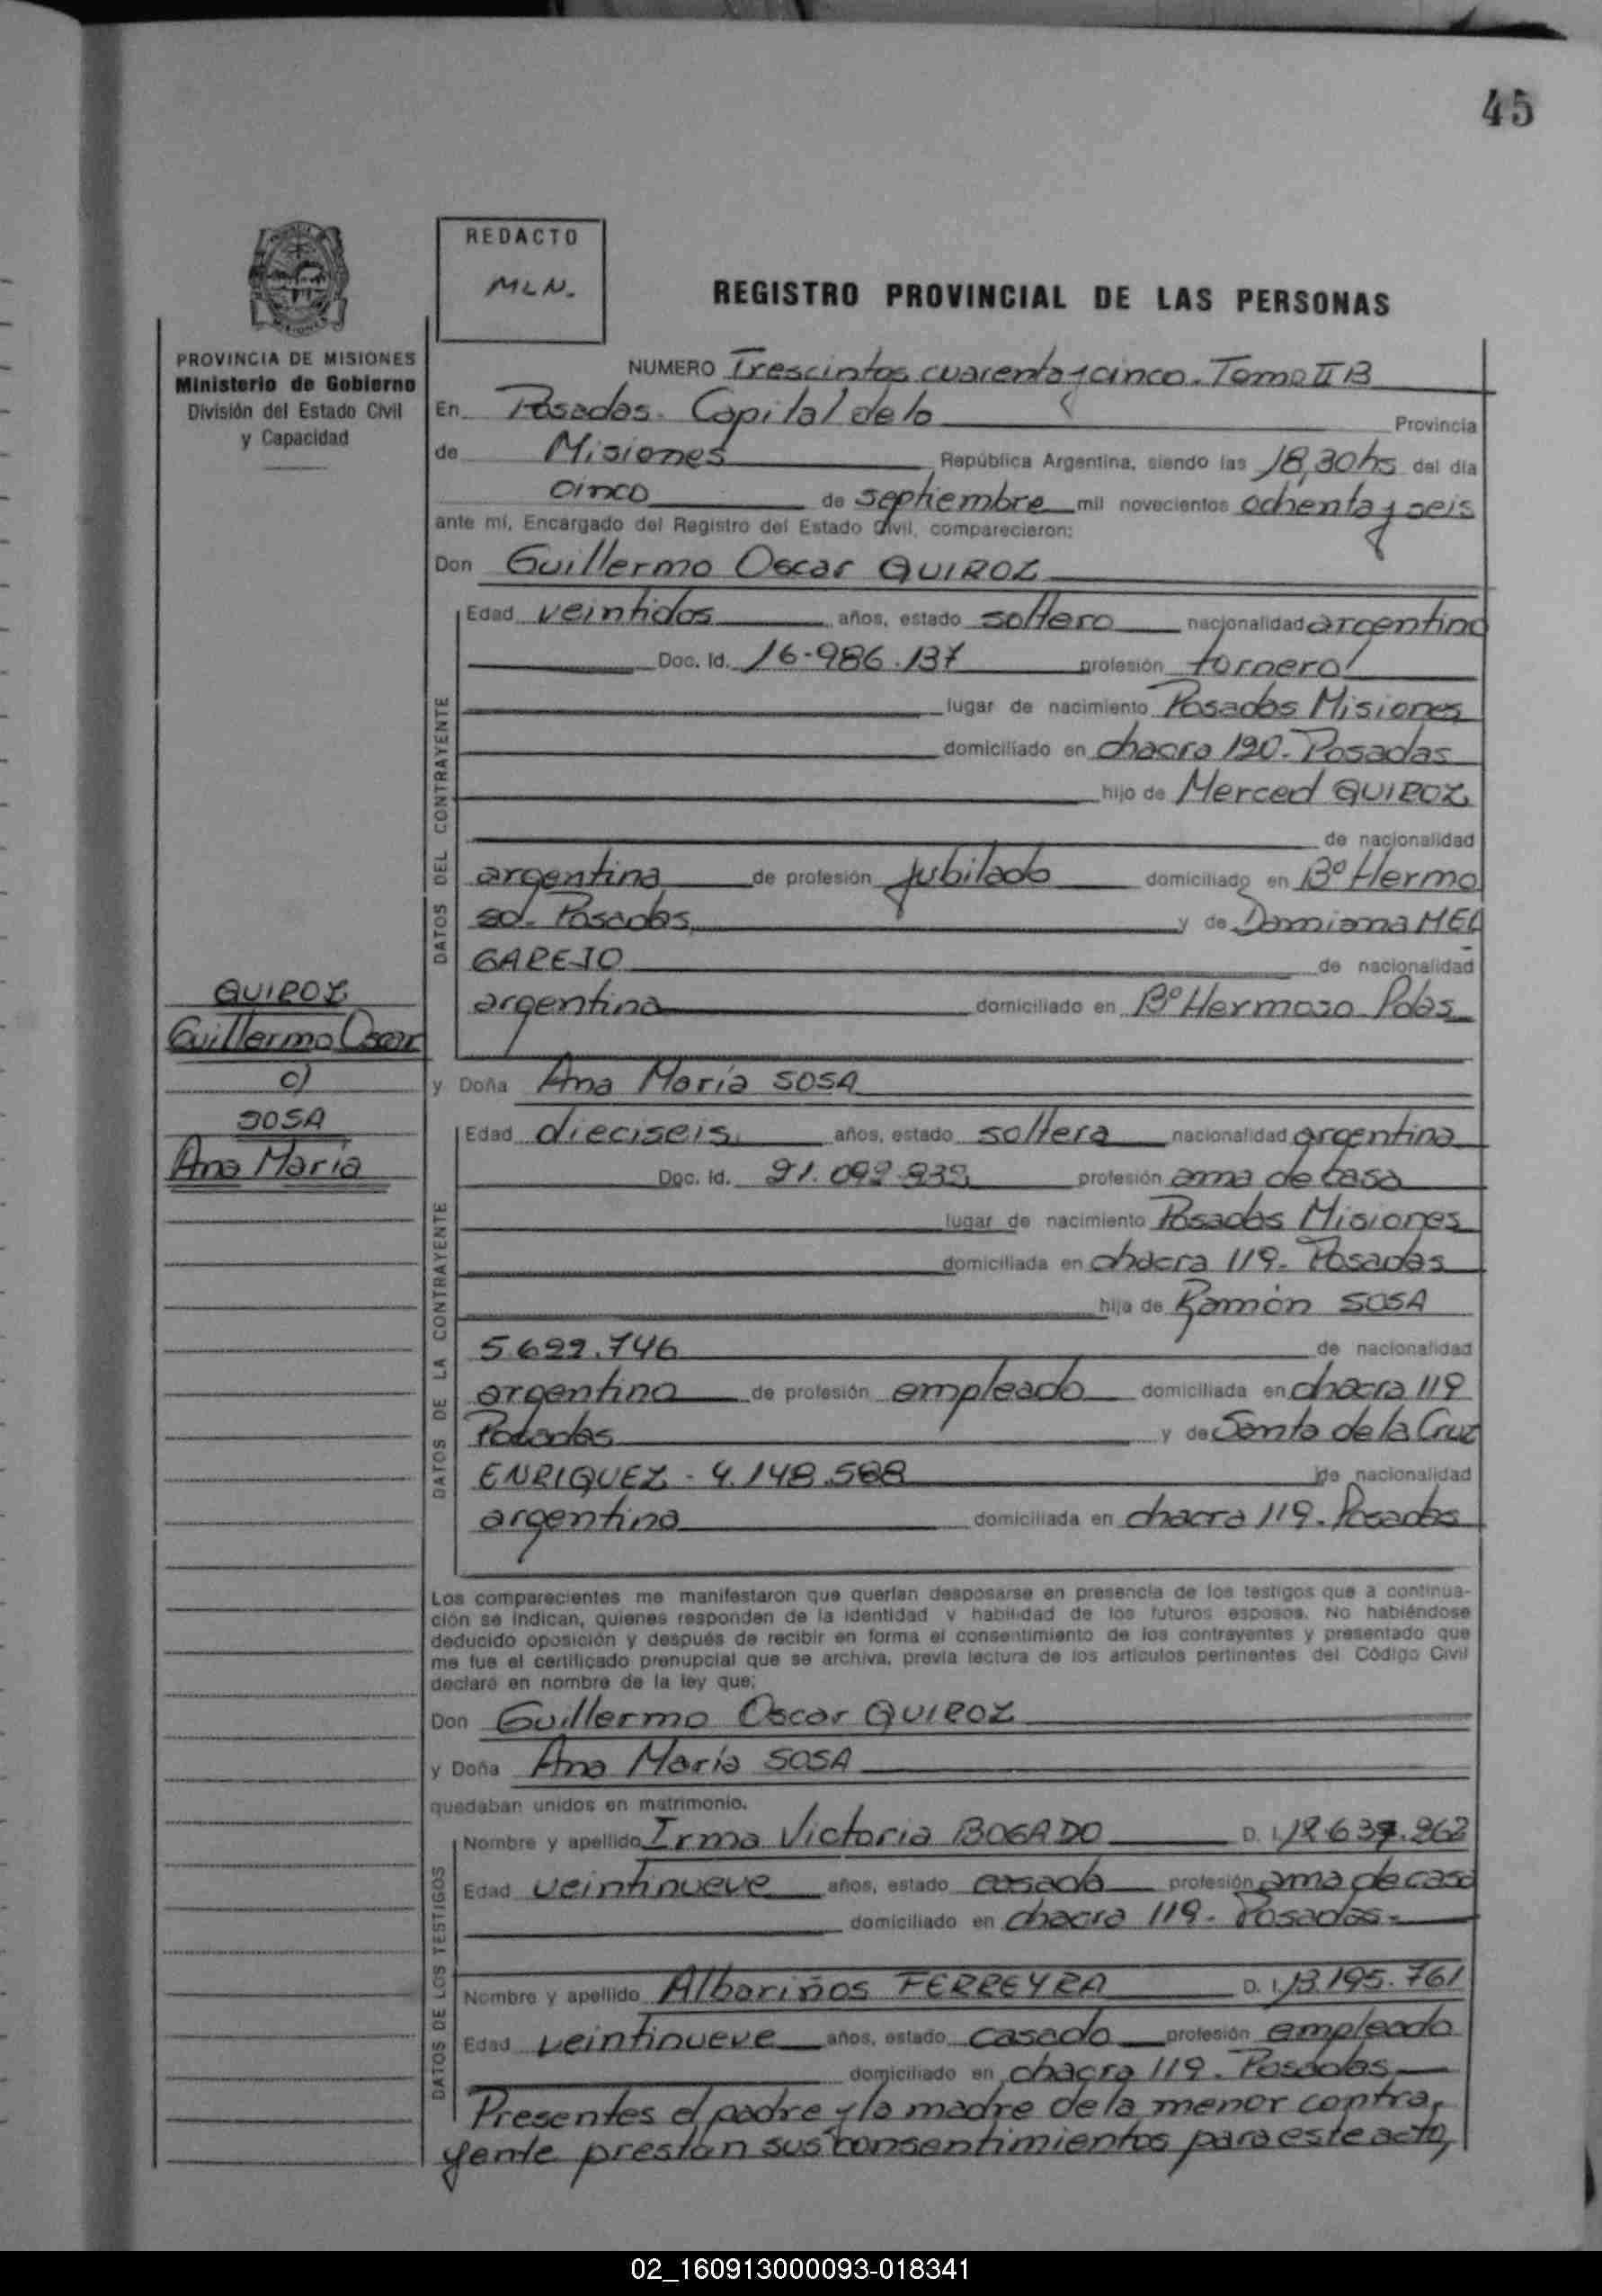 45
REDACTO
MLN.
REGISTRO PROVINCIAL DE LAS PERSONAS
PROVINCIA DE MISIONES
Ministerio de Gobierno
División del Estado Civil
y Capacidad
NUMERO Trescintos cuarenta y cinco. Tomo II B
En Posadas. Capital de la Provincia
de Misiones República Argentina, siendo las 18,30hs del día
cinco de septiembre mil novecientos ochenta y seis
ante mí, Encargado del Registro del Estado Civil, comparecieron:
Don Guillermo Oscar QUIROZ
DATOS DEL CONTRAYENTE
Edad veintidos años, estado soltero nacionalidad argentino
Doc. Id. 16.986.137 profesión tornero
lugar de nacimiento Posadas Misiones
domiciliado en chacra 190. Posadas
hijo de Merced QUIROZ
de nacionalidad
argentina de profesión jubilado domiciliado en Bº Hermo
so. Posadas y de Damiana MEL
GAREJO de nacionalidad
argentina domiciliado en Bº Hermoso Pdas
QUIROZ
Guillermo Oscar
c)
SOSA
Ana María
y Doña Ana María SOSA
DATOS DE LA CONTRAYENTE
Edad dieciseis años, estado soltera nacionalidad argentina
Doc. Id. profesión ama de casa
lugar de nacimiento Posadas Misiones
domiciliada en chacra 119. Posadas
hija de Ramón SOSA
5.622.746 de nacionalidad
argentino de profesión empleado domiciliada en chacra 119
Posadas y de Santa de la Cruz
ENRIQUEZ - 4.148.588 de nacionalidad
argentina domiciliada en chacra 119. Posadas
Los comparecientes me manifestaron que querían desposarse en presencia de los testigos que a continua-
ción se indican, quienes responden de la identidad y habilidad de los futuros esposos. No habiéndose
deducido oposición y después de recibir en forma el consentimiento de los contrayentes y presentado que
me fue el certificado prenupcial que se archiva, previa lectura de los artículos pertinentes del Código Civil
declaré en nombre de la ley que:
Don Guillermo Oscar QUIROZ
y Doña Ana María SOSA
quedaban unidos en matrimonio.
DATOS DE LOS TESTIGOS
Nombre y apellido Irma Victoria BOGADO D. I. 12.637.962
Edad veintinueve años, estado casada profesión ama de casa
domiciliado en chacra 119. Posadas.
Nombre y apellido Albariños FERREYRA D. I. 13.195.761
Edad veintinueve años, estado casado profesión empleado
domiciliado en chacra 119. Posadas
Presentes el padre y la madre de la menor contra
yente prestan sus consentimientos para este acto,
02_160913000093-018341